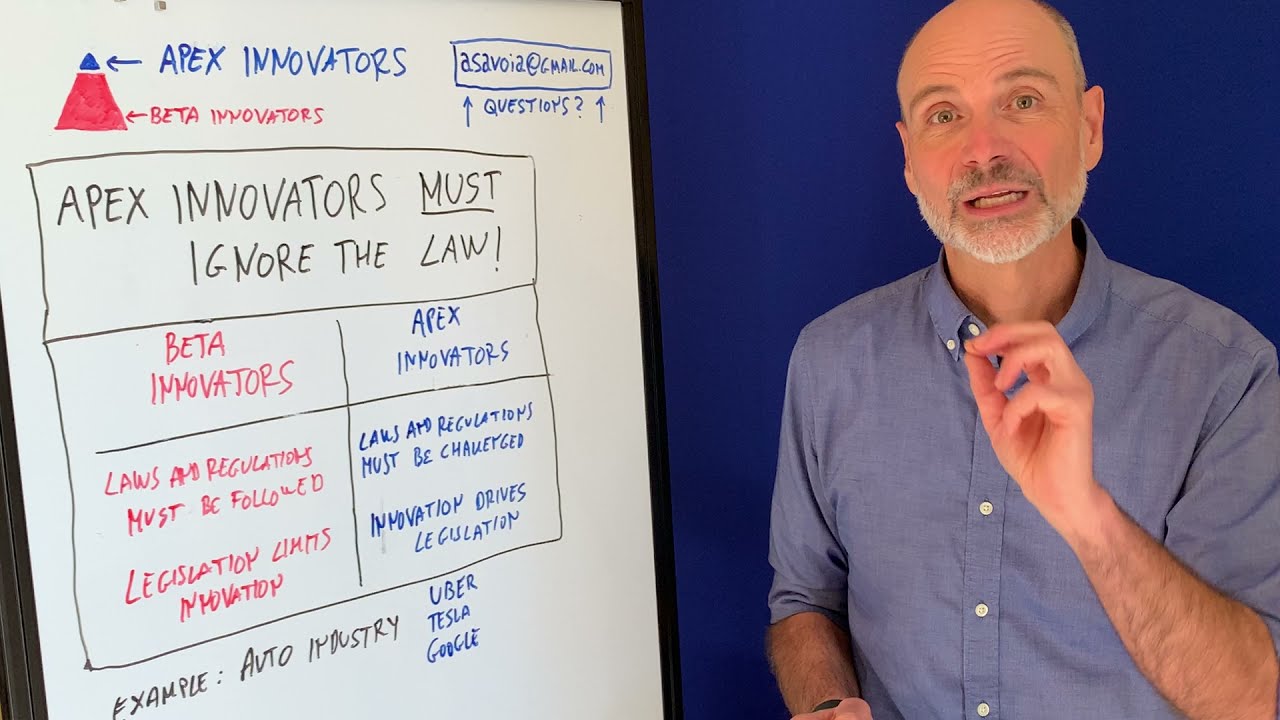 ← APEX INNOVATORS
asavoia@GMAIL.COM
↑ QUESTIONS? ↑
← BETA INNOVATORS
APEX INNOVATORS MUST
IGNORE THE LAW!
BETA
INNOVATORS
APEX
INNOVATORS
LAWS AND REGULATIONS
MUST BE FOLLOWED
LEGISLATION LIMITS
INNOVATION
LAWS AND REGULATIONS
MUST BE CHALLENGED
INNOVATION DRIVES
LEGISLATION
EXAMPLE: AUTO INDUSTRY
UBER
TESLA
GOOGLE